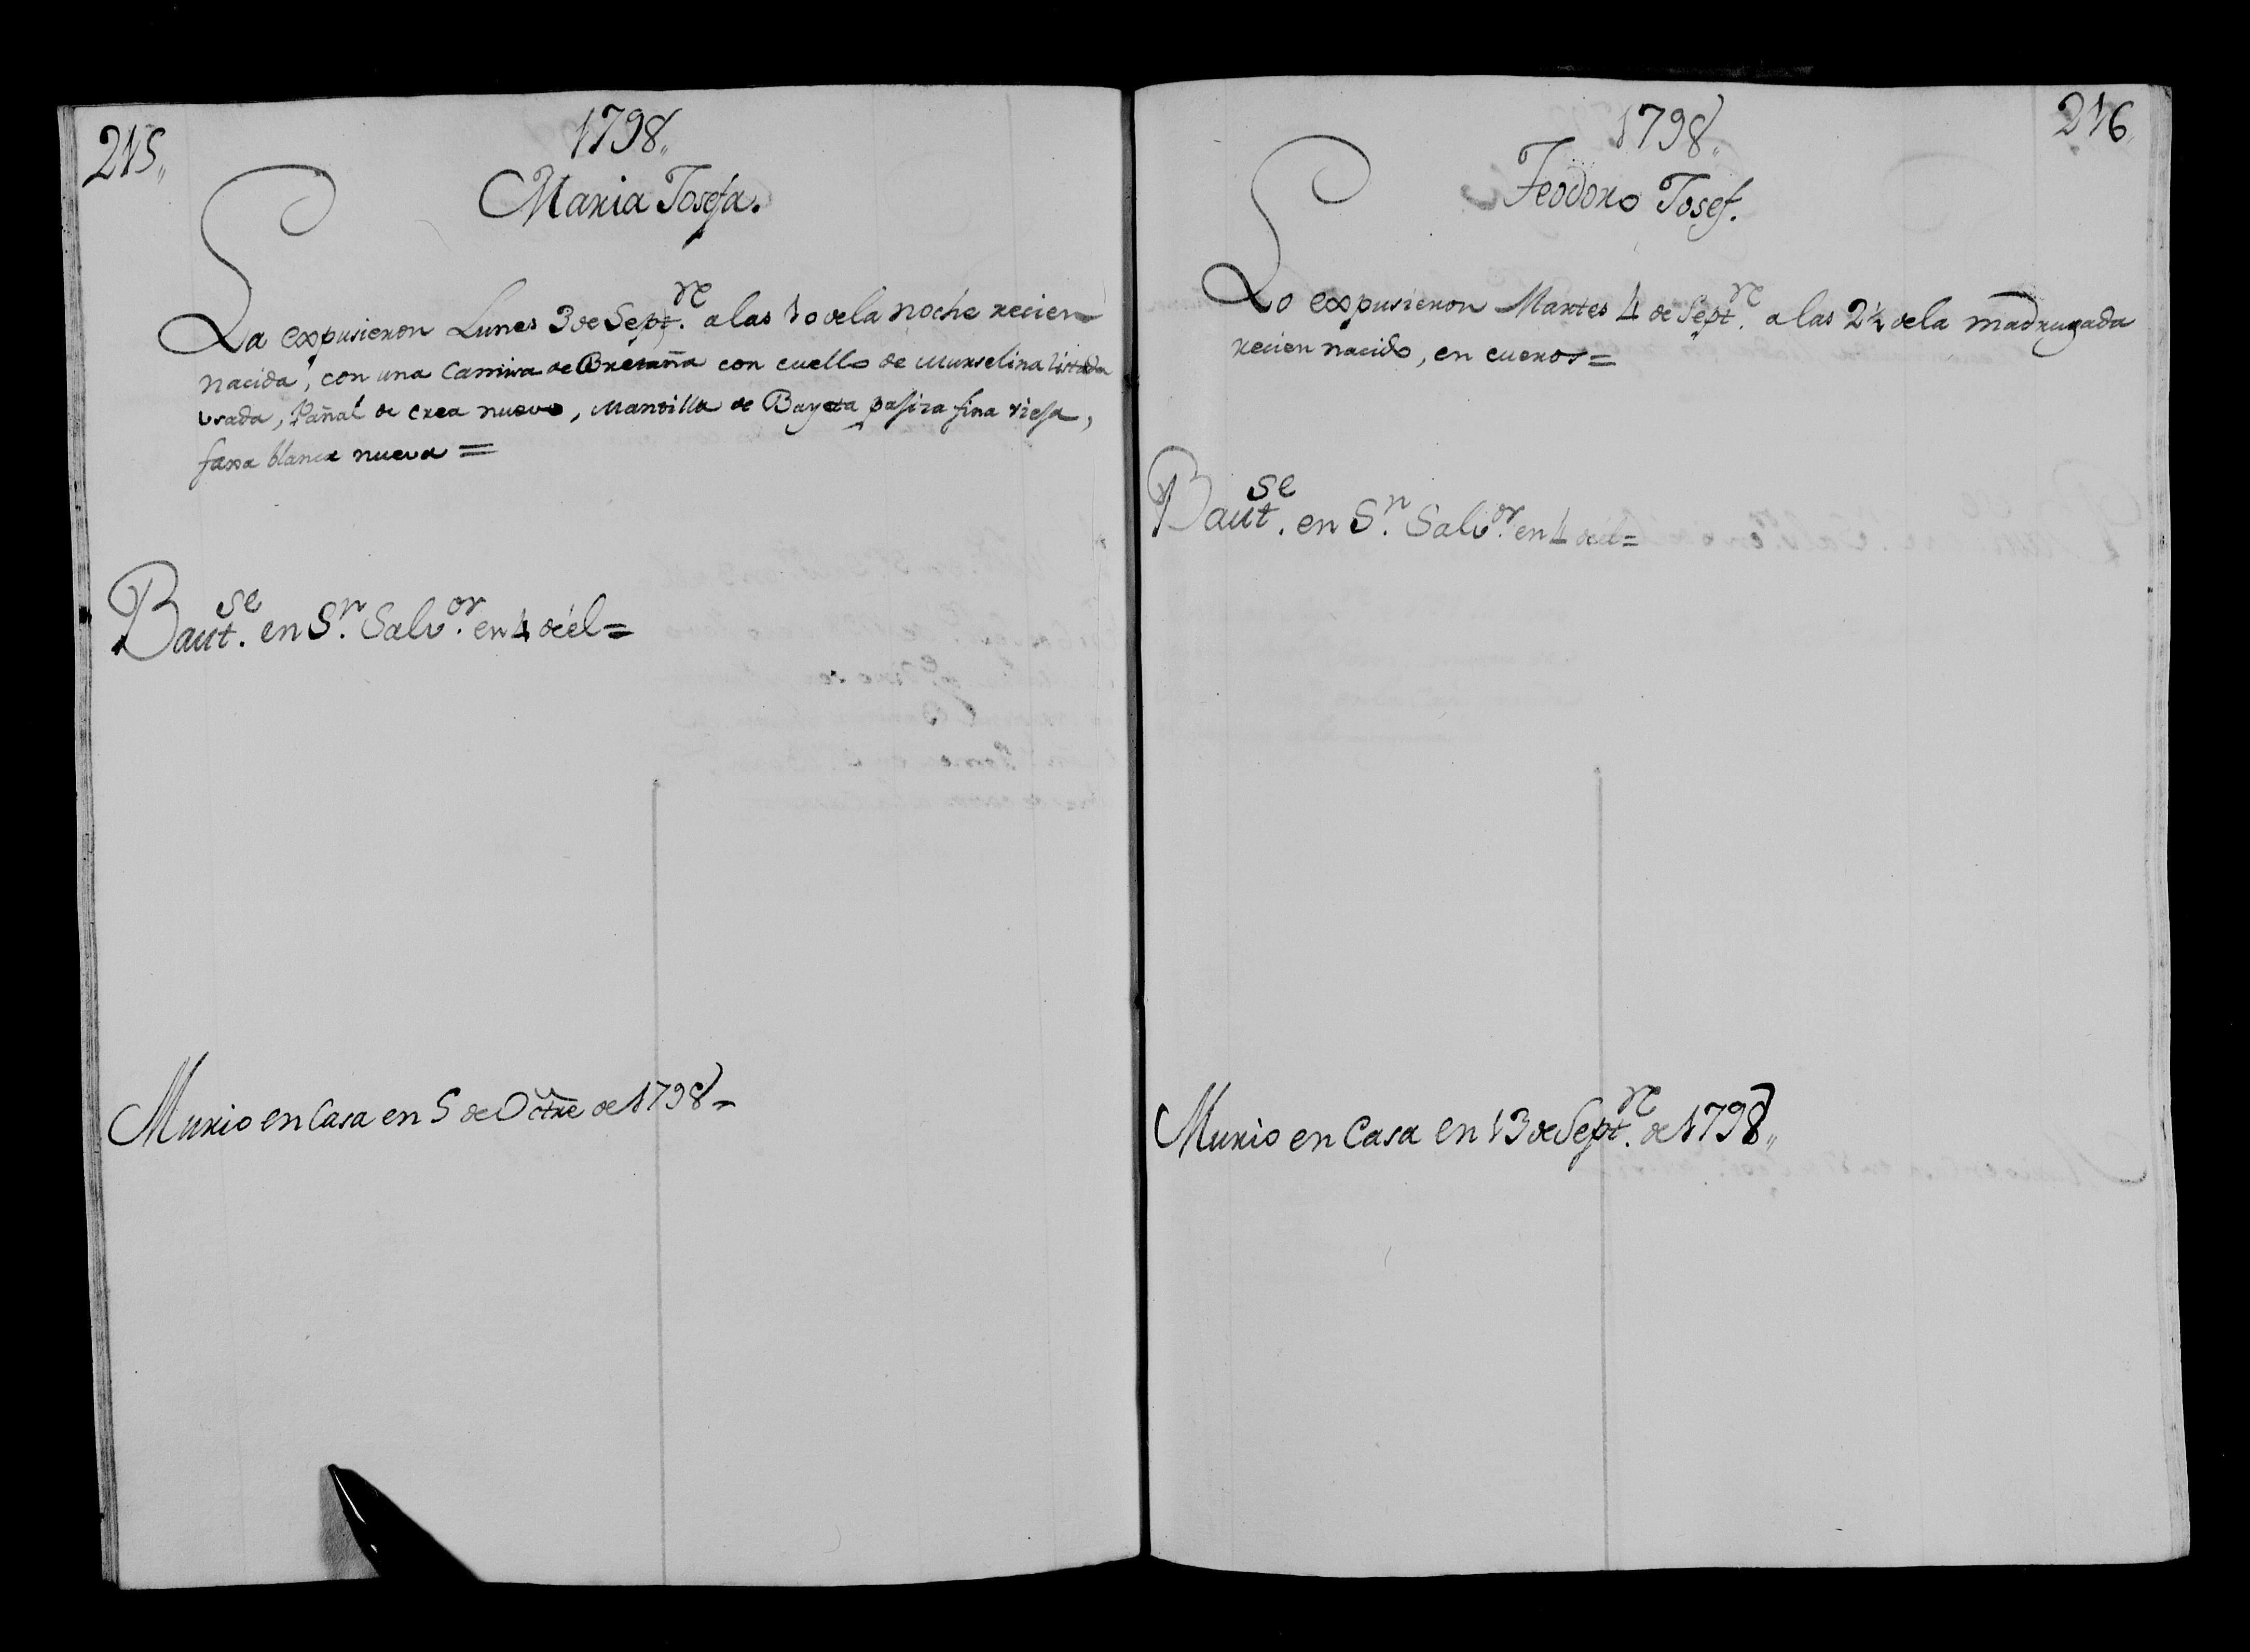 215,,
1798,,
Maria Josefa.
La expusieron Lunes 3 de Sept.re a las 10 dela noche recien
nacida, con una Camisa de Bretaña con cuello de Murselina listada
usada, Pañal de crea nuevo, Mantilla de Bayeta pajiza fina vieja,
faxa blanca nueva =
Baut.se en S.n Salv.or en 4 de él =
Murio en Casa en 5 de Octre de 1798 =
216,,
1798,,
Teodoro Josef.
Lo expusieron Martes 4 de Sept.re a las 2½ dela madrugada
recien nacido, en cueros =
Baut.se en S.n Salv.or en 4 de él =
Murio en Casa en 13 de Sept.re de 1798,,